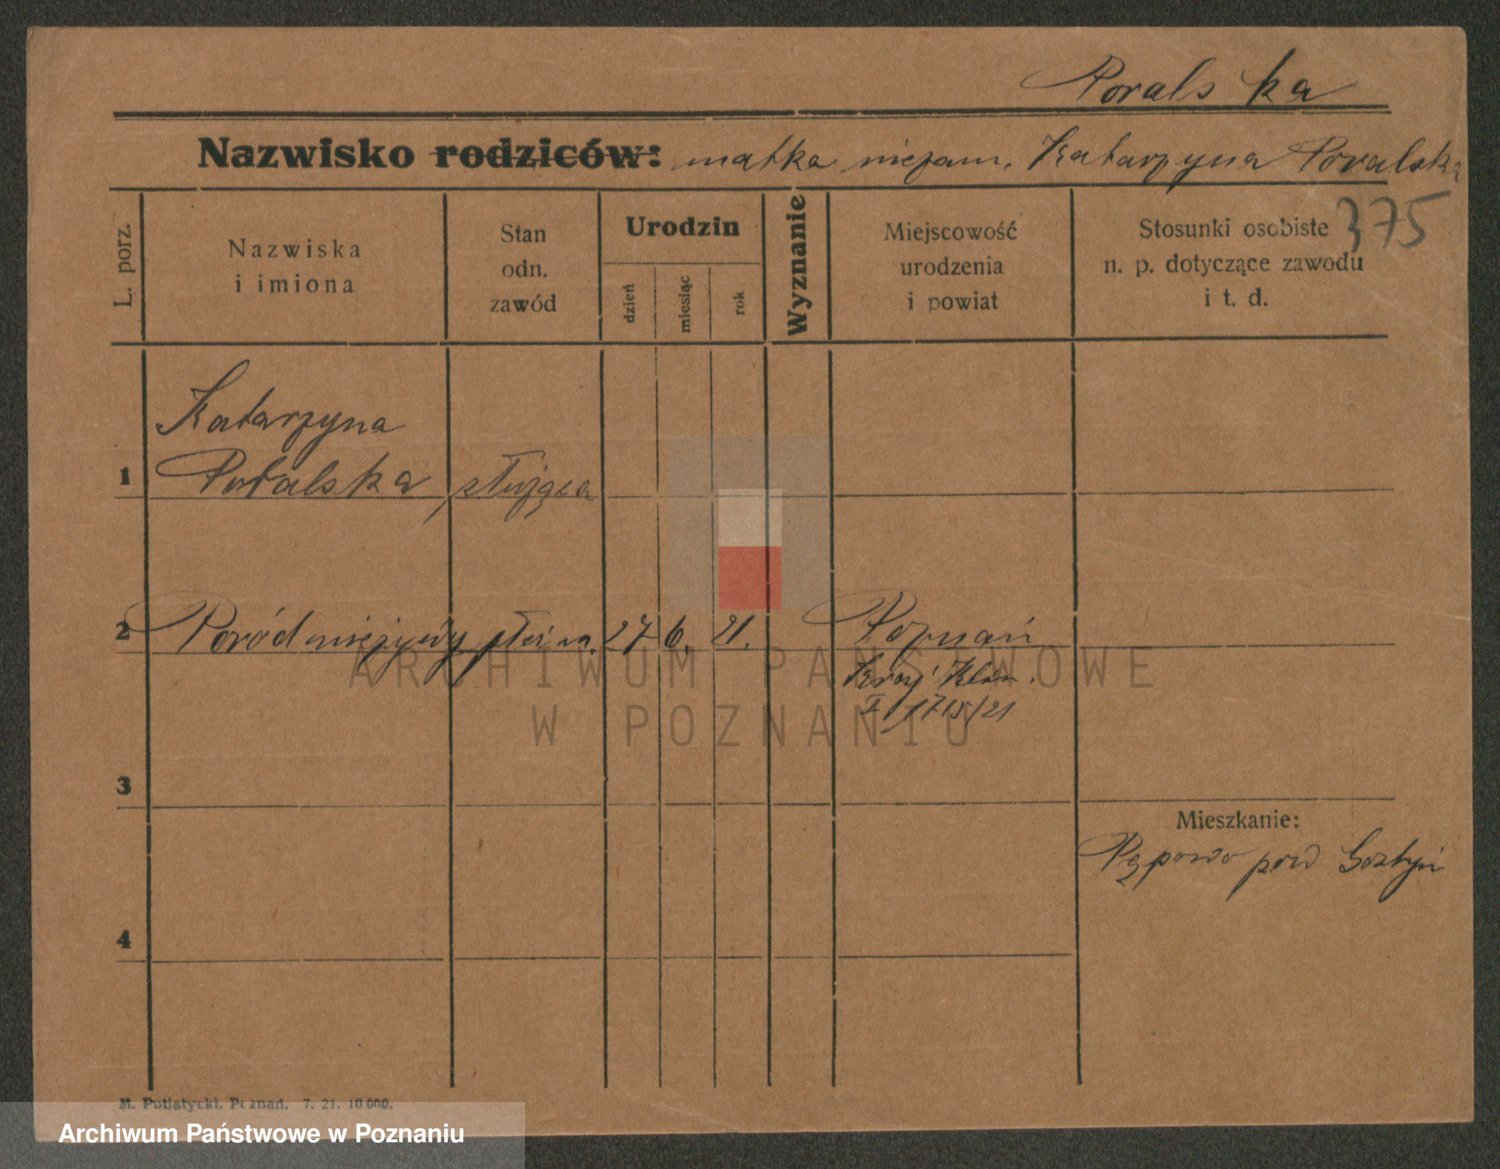 Poralska
Nazwisko rodziców: matka niezam. Katarzyna Poralska
375
L. porz.
Nazwiska
i imiona
Stan
odn.
zawód
Urodzin
dzień
miesiąc
rok
Wyznanie
Miejscowość
urodzenia
i powiat
Stosunki osobiste
n. p. dotyczące zawodu
i t. d.
Katarzyna
1 Poralska służąca
2 Poród nieżywy płci m. 27 6. 21. Poznań
Kraj. Klin.
I 1715/21
3
Mieszkanie:
Pępowo pow Gostyń
4
M. Putiatycki. Poznań. 7. 21. 10 000.
ARCHIWUM PAŃSTWOWE
W POZNANIU
Archiwum Państwowe w Poznaniu